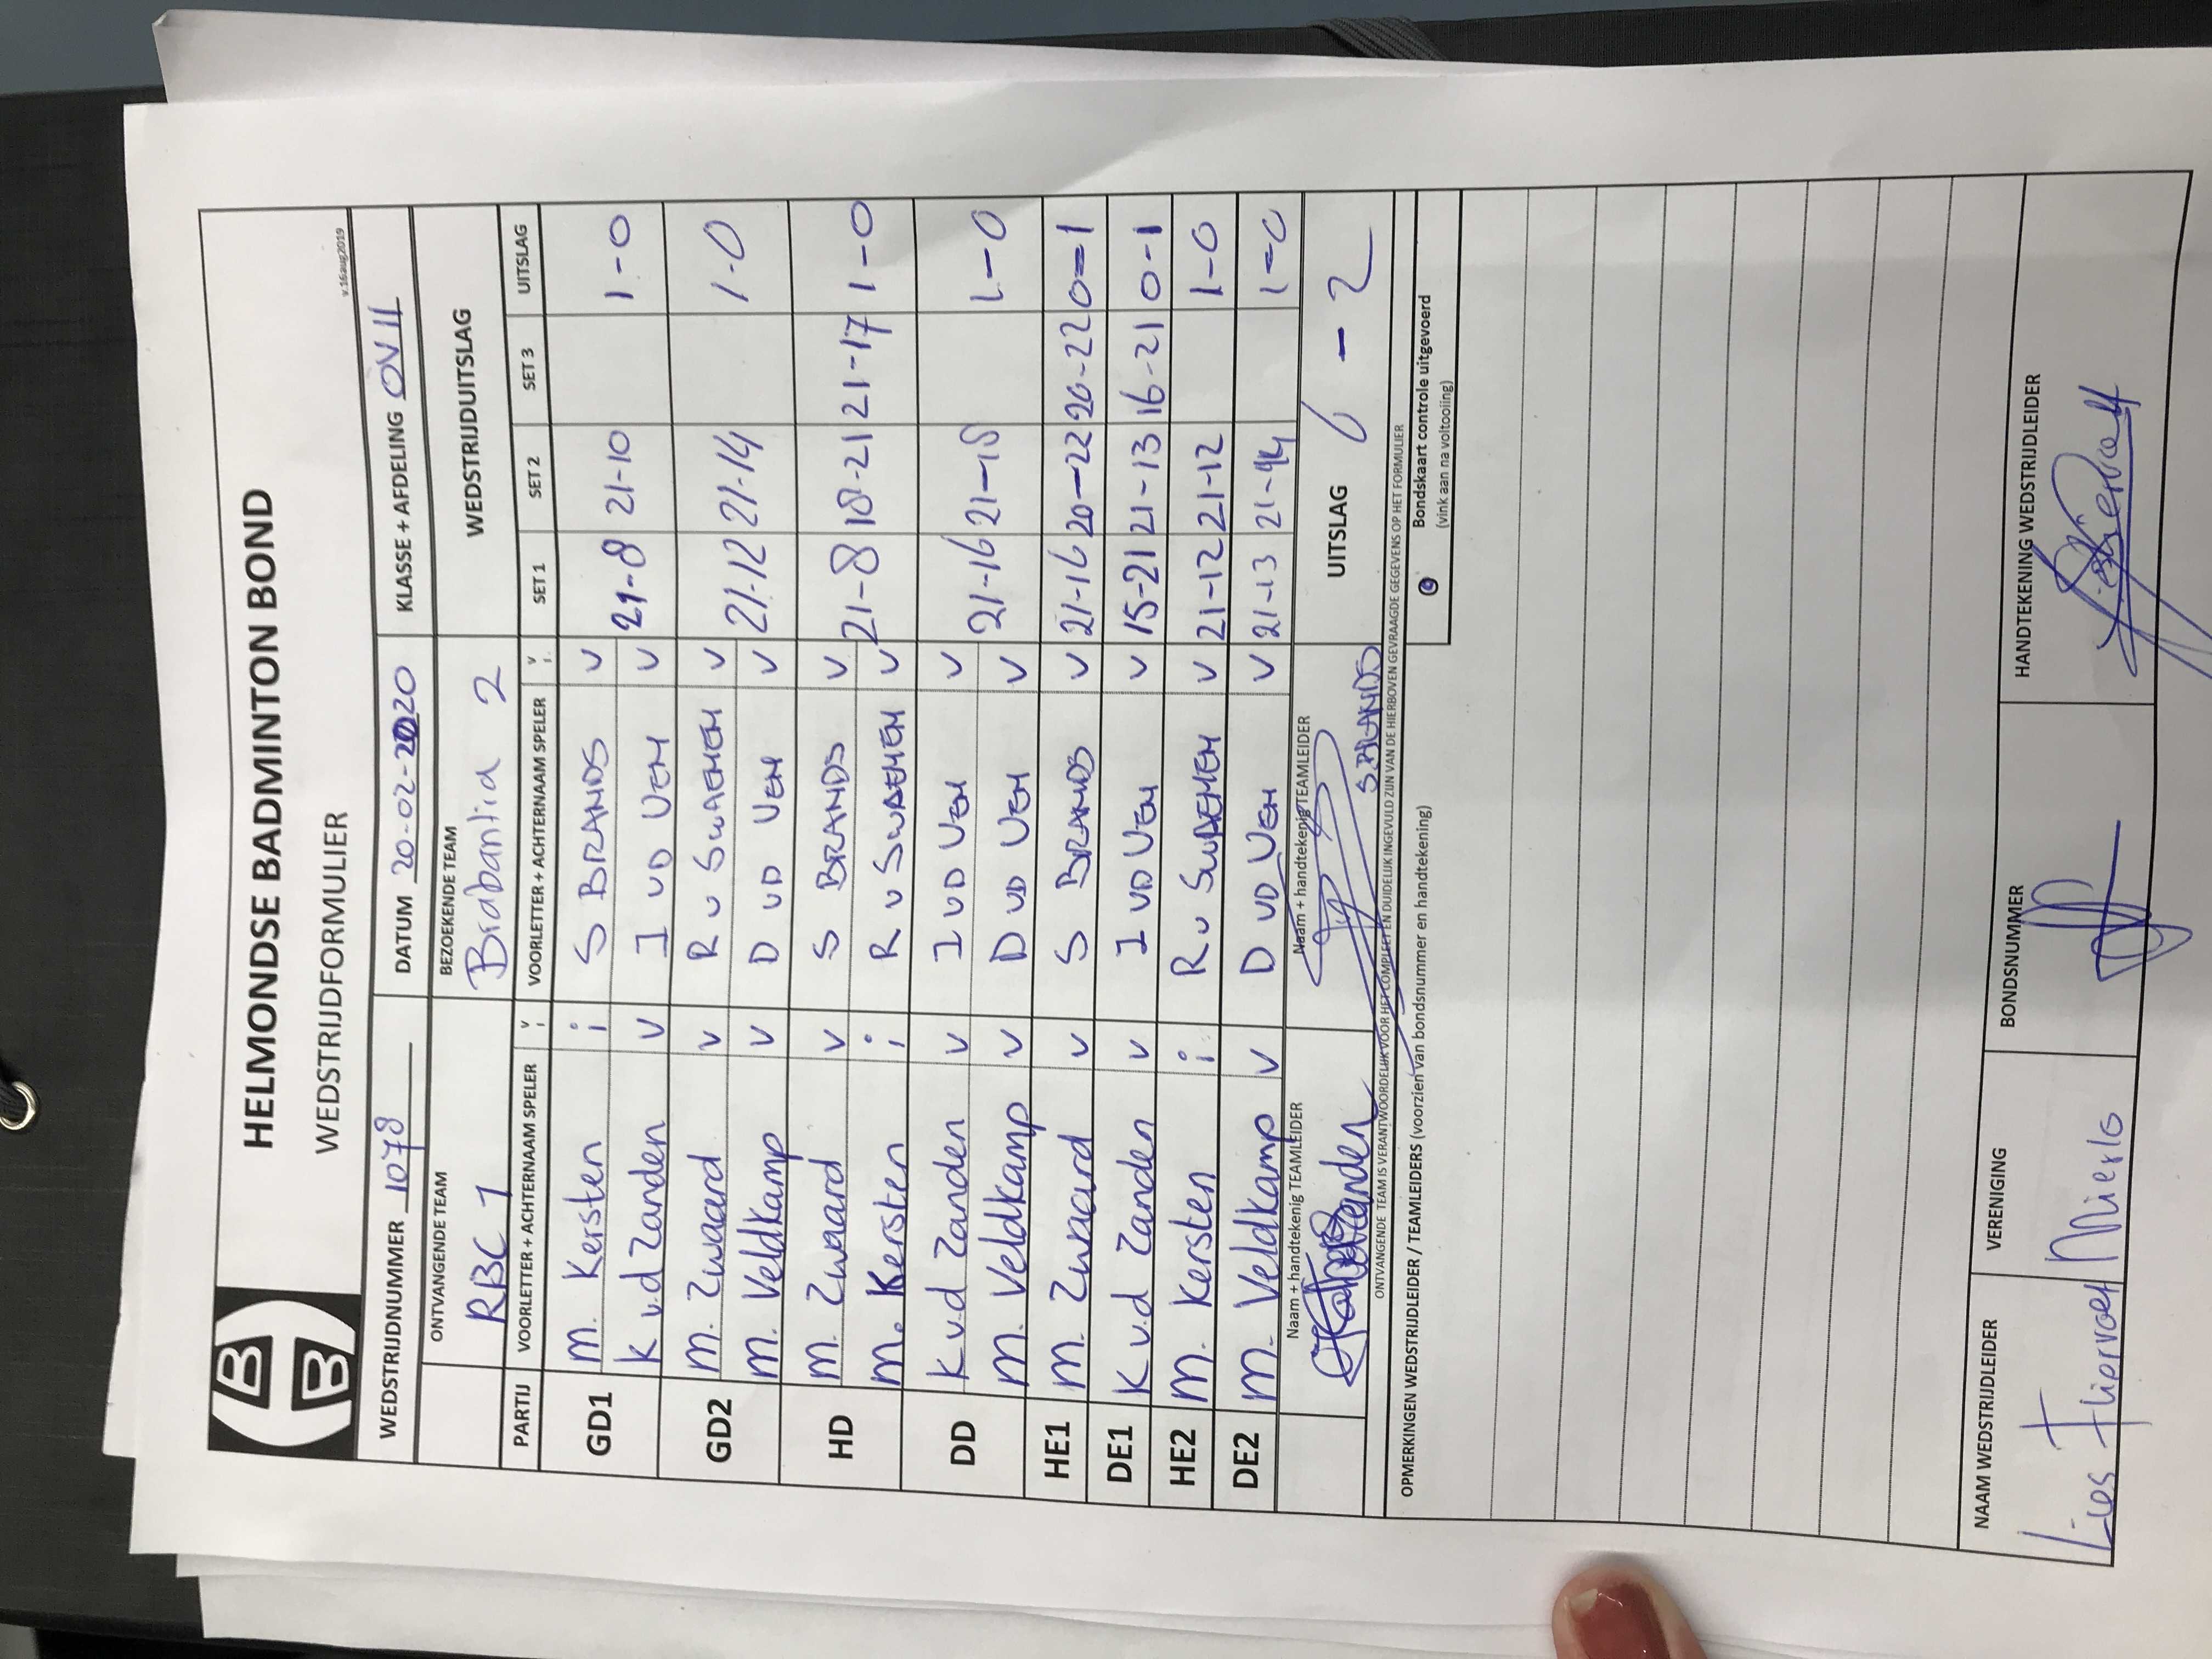 HELMONDSE BADMINTON BOND
WEDSTRIJDFORMULIER
v.16aug2019
WEDSTRIJDNUMMER 1078 DATUM 20-02-2020 KLASSE + AFDELING OV II
ONTVANGENDE TEAM BEZOEKENDE TEAM WEDSTRIJDUITSLAG
RBC 1 Brabantia 2
PARTIJ VOORLETTER + ACHTERNAAM SPELER v i VOORLETTER + ACHTERNAAM SPELER v i. SET 1 SET 2 SET 3 UITSLAG
GD1 M. Kersten i S BRANDS v 21-8 21-10 1-0
K v.d Zanden v I VD VEN v
GD2 M. Zwaard v R v SWAEMEN v 21-12 21-14 1-0
M. Veldkamp v D VD VEN v
HD M. Zwaard v S BRANDS v 21-8 18-21 21-17 1-0
M. Kersten i R v SWAEMEN v
DD K v.d Zanden v I VD VEN v 21-16 21-18 1-0
M. Veldkamp v D VD VEN v
HE1 M. Zwaard v S BRANDS v 21-16 20-22 20-22 0-1
DE1 K v.d Zanden v I VD VEN v 15-21 21-13 16-21 0-1
HE2 M. Kersten i R v SWAEMEN v 21-12 21-12 1-0
DE2 M. Veldkamp v D VD VEN v 21-13 21-14 1-0
Naam + handtekenig TEAMLEIDER Naam + handtekenig TEAMLEIDER UITSLAG 6 - 2
S.BRANDS
ONTVANGENDE TEAM IS VERANTWOORDELIJK VOOR HET COMPLEET EN DUIDELIJK INGEVULD ZIJN VAN DE HIERBOVEN GEVRAAGDE GEGEVENS OP HET FORMULIER
OPMERKINGEN WEDSTRIJDLEIDER / TEAMLEIDERS (voorzien van bondsnummer en handtekening) Bondskaart controle uitgevoerd
(vink aan na voltooiing)
NAAM WEDSTRIJDLEIDER VERENIGING BONDSNUMMER HANDTEKENING WEDSTRIJDLEIDER
Lies Fliervoet Mierlo